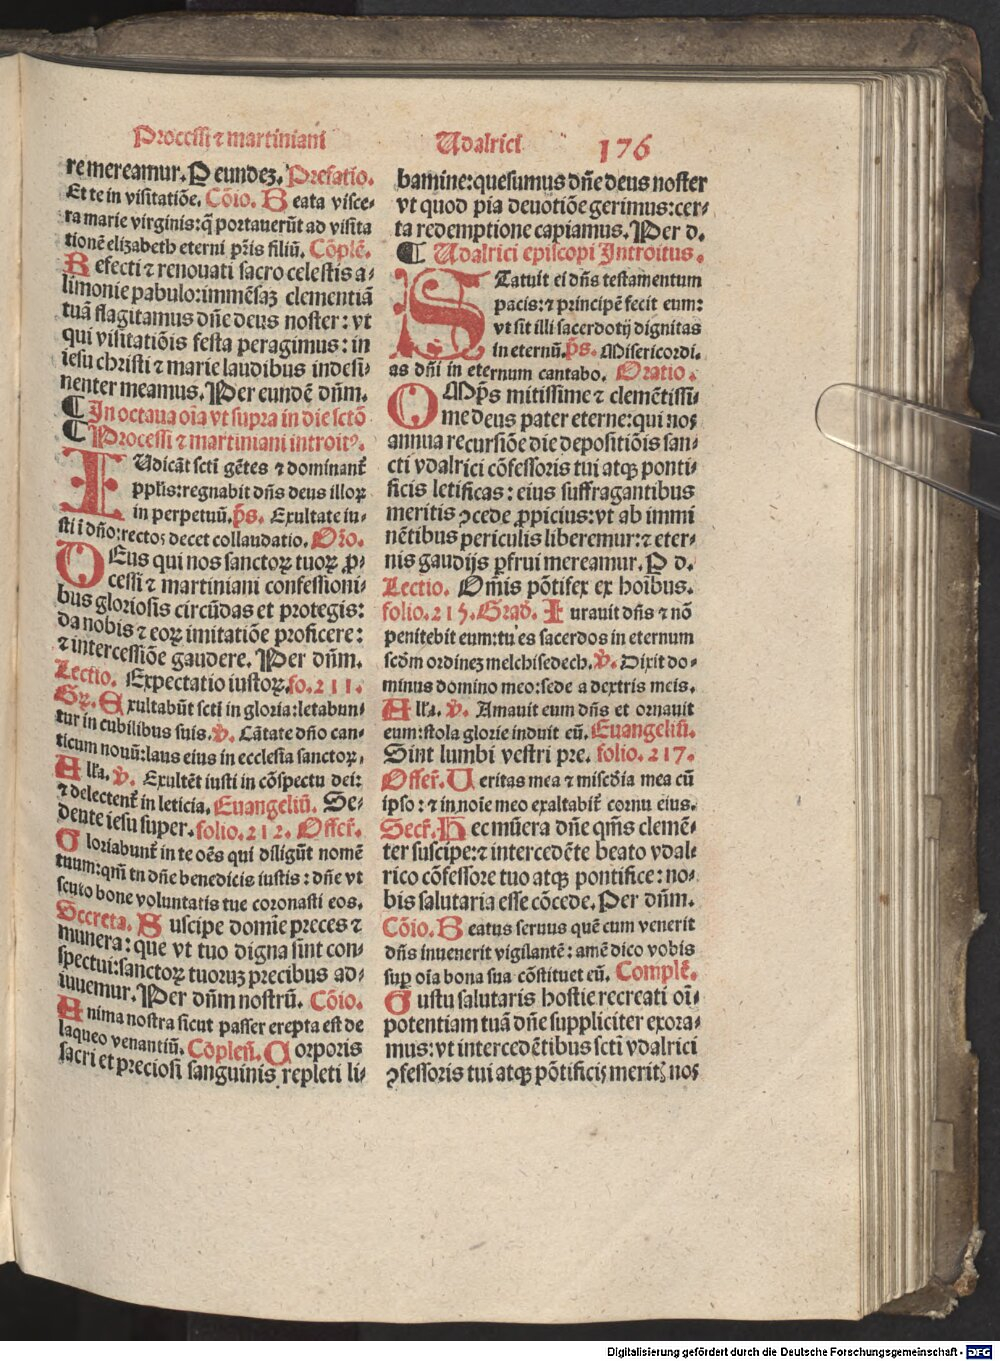 Processi ⁊ martiniani
Udalrici 176
re mereamur. P eundeʒ. Prefatio.
Et te in visitatiōe. Cōio. Beata visce-
ra marie virginis: q̄ portauerūt ad visita
tionē elizabeth eterni pr̄is filiū. Cōplē.
Refecti ⁊ renouati sacro celestis a-
limonie pabulo: immēsaʒ clementiā
tuā flagitamus dn̄e deus noster: vt
qui visitatiōis festa peragimus: in
iesu christi ⁊ marie laudibus indesi-
nenter meamus. Per eundē dn̄m.
¶ In octaua oīa vt supra in die sctō
¶ Processi ⁊ martiniani introitꝰ.
IUdicāt scti gētes ⁊ dominant̄
pplīs: regnabit dn̄s deus illoꝝ
in perpetuū. p̄s. Exultate iu-
sti ī dn̄o: rectos decet collaudatio. Or̄o.
DEus qui nos sanctoꝝ tuoꝝ ꝓ-
cessi ⁊ martiniani confessioni-
bus gloriosis circūdas et protegis:
da nobis ⁊ eoꝝ imitatiōe proficere:
⁊ intercessiōe gaudere. Per dn̄m.
Lectio. Expectatio iustoꝝ. fo. 211.
Gr̄. Exultabūt scti in gloria: letabun-
tur in cubilibus suis. v̄. Cātate dn̄o can-
ticum nouū: laus eius in ecclesia sanctoꝝ.
Alľa. v̄. Exultēt iusti in cōspectu dei:
⁊ delectent̄ in leticia. Euangeliū. Se-
dente iesu super. folio. 212. Offer̄.
Gloriabunt̄ in te oēs qui diligūt nomē
tuum: qm̄ tu dn̄e benedicis iustis: dn̄e vt
scuto bone voluntatis tue coronasti eos.
Secreta. Suscipe domīe preces ⁊
munera: que vt tuo digna sint con-
spectui: sanctoꝝ tuoruʒ precibus ad-
iuuemur. Per dn̄m nostrū. Cōio.
Anima nostra sicut passer erepta est de
laqueo venantiū. Cōpleñ. Corporis
sacri et preciosi sanguinis repleti li-
bamine: quesumus dn̄e deus noster
vt quod pia deuotiōe gerimus: cer-
ta redemptione capiamus. Per d.
¶ Udalrici episcopi Introitus.
STatuit ei dn̄s testamentum
pacis: ⁊ principē fecit eum:
vt sit illi sacerdotij dignitas
in eternū. p̄s. Misericordi-
as dn̄i in eternum cantabo. Oratio.
OMp̄s mitissime ⁊ clemētissi-
me deus pater eterne: qui nos
annua recursiōe die depositiōis san-
cti vdalrici cōfessoris tui atqꝫ ponti-
ficis letificas: eius suffragantibus
meritis ꝯcede ꝓpicius: vt ab immi
nētibus periculis liberemur: ⁊ eter-
nis gaudijs ꝑfrui mereamur. P d.
Lectio. Om̄is pōtifex ex hoībus.
folio. 215. Grad̄. Iurauit dn̄s ⁊ nō
penitebit eum: tu es sacerdos in eternum
scd̄m ordineʒ melchisedech. v̄. Dixit do-
minus domino meo: sede a dextris meis.
Alľa. v̄. Amauit eum dn̄s et ornauit
eum: stola glorie induit eū. Euangeliū.
Sint lumbi vestri pre. folio. 217.
Offer̄. Ueritas mea ⁊ misc̄dia mea cū
ipso: ⁊ in noīe meo exaltabit̄ cornu eius.
Secr̄. Hec mūera dn̄e qm̄s clemē-
ter suscipe: ⁊ intercedēte beato vdal-
rico cōfessore tuo atqꝫ pontifice: no-
bis salutaria esse cōcede. Per dn̄m.
Cōio. Beatus seruus quē cum venerit
dn̄s inuenerit vigilantē: amē dico vobis
suꝑ oīa bona sua cōstituet eū. Complē.
Gustu salutaris hostie recreati oī-
potentiam tuā dn̄e suppliciter exora-
mus: vt intercedētibus sctī vdalrici
ꝯfessoris tui atqꝫ pōtificis meritꝭ nos
Digitalisierung gefördert durch die Deutsche Forschungsgemeinschaft - DFG